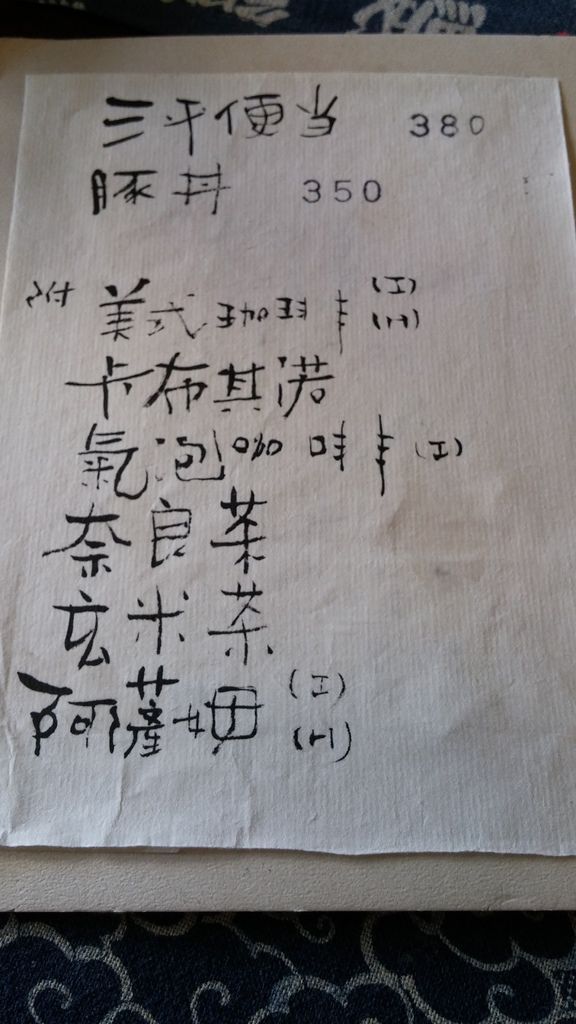 三平便当 380
豚丼 350
附 美式珈琲 (I) (H)
卡布其諾
氣泡咖啡 (I)
奈良茶
玄米茶
阿薩姆 (I) (H)